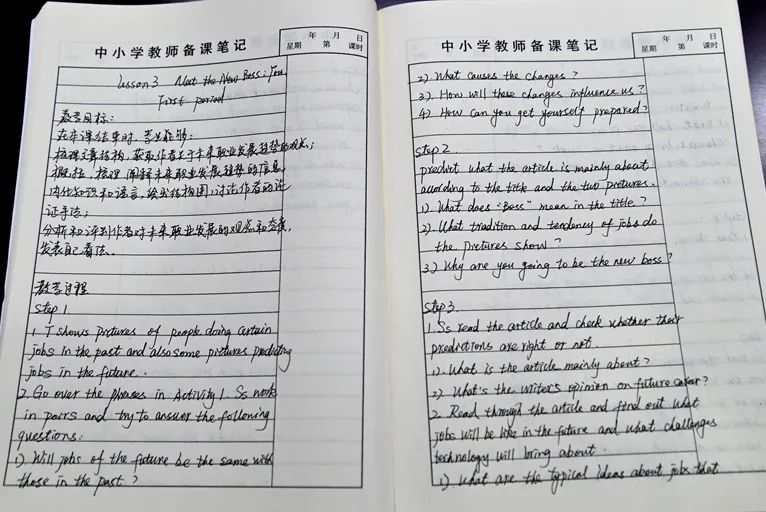 中小学教师备课笔记
年 月 日
星期 第 课时
Lesson 3 Meet the New Boss: You
First period
教学目标:
在本课结束时,学生能够:
梳理文章结构,获取作者关于未来职业发展趋势的观点;
概括、梳理、阐释未来职业发展趋势的信息,
内化知识和语言,绘出结构图,讨论作者的论
证手法;
分析和评判作者对未来职业发展的观点和态度,
发表自己看法.
教学过程
Step 1
1. T shows pictures of people doing certain
jobs in the past and also some pictures predicting
jobs in the future.
2. Go over the phrases in Activity 1. Ss work
in pairs and try to answer the following
questions:
1). Will jobs of the future be the same with
those in the past?
中小学教师备课笔记
年 月 日
星期 第 课时
2). What causes the changes?
3). How will these changes influence us?
4). How can you get yourself prepared?
Step 2.
predict what the article is mainly about
according to the title and the two pictures.
1). What does "Boss" mean in the title?
2). What tradition and tendency of jobs do
the pictures show?
3.) Why are you going to be the new boss?
Step 3.
1. Ss read the article and check whether their
predictions are right or not
1). What is the article mainly about?
2). What's the writer's opinion on future career?
2. Read through the article and find out what
jobs will be like in the future and what challenges
technology will bring about.
1). What are the typical ideas about jobs that